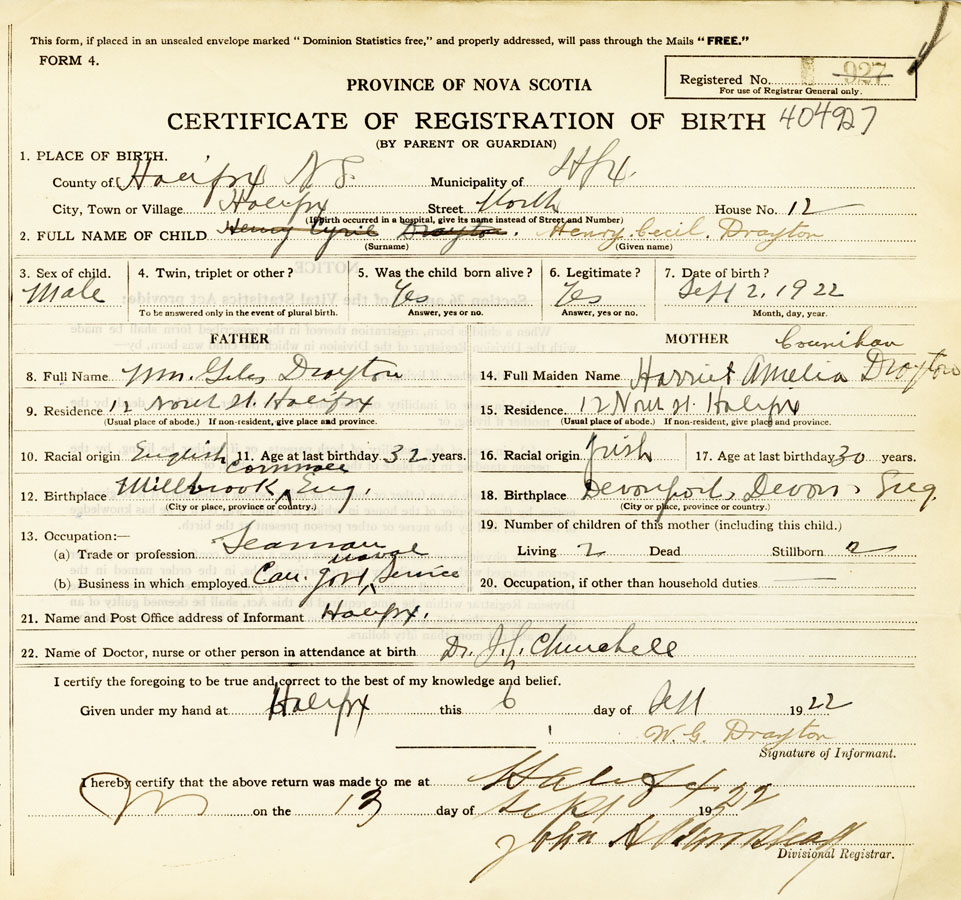 This form, if placed in an unsealed envelope marked "Dominion Statistics free," and properly addressed, will pass through the Mails "FREE."
FORM 4.
Registered No. 927
For use of Registrar General only.
PROVINCE OF NOVA SCOTIA
CERTIFICATE OF REGISTRATION OF BIRTH 404927
(BY PARENT OR GUARDIAN)
1. PLACE OF BIRTH.
County of Halifax N S. Municipality of Hfx.
City, Town or Village Halifax Street North House No. 12
(If birth occurred in a hospital, give its name instead of Street and Number)
2. FULL NAME OF CHILD Henry Cyril Drayton. Henry Cecil. Drayton
(Surname) (Given name)
3. Sex of child. 4. Twin, triplet or other? 5. Was the child born alive? 6. Legitimate? 7. Date of birth?
Male Yes Yes Sept 2, 1922
To be answered only in the event of plural birth. Answer, yes or no. Answer, yes or no. Month, day, year.
FATHER MOTHER Counihan
8. Full Name Wm. Giles Drayton 14. Full Maiden Name Harriet Amelia Drayton
9. Residence 12 North St. Halifax 15. Residence. 12 North St. Halifax
(Usual place of abode.) If non-resident, give place and province. (Usual place of abode.) If non-resident, give place and province.
10. Racial origin English 11. Age at last birthday 32 years. 16. Racial origin Irish 17. Age at last birthday 30 years.
Cornwall
12. Birthplace Millbrook Eng. 18. Birthplace Devonport, Devon, Eng.
(City or place, province or country.) (City or place, province or country.)
19. Number of children of this mother (including this child.)
13. Occupation:—
(a) Trade or profession Seaman Living 2 Dead Stillborn
naval
(b) Business in which employed Can. Govt Service 20. Occupation, if other than household duties —
21. Name and Post Office address of Informant Halifax.
22. Name of Doctor, nurse or other person in attendance at birth Dr. J. Churchill
I certify the foregoing to be true and correct to the best of my knowledge and belief.
Given under my hand at Halifax this 6 day of Sept 1922
W. G. Drayton
Signature of Informant.
I hereby certify that the above return was made to me at Halifax
on the 13 day of Sept 1922
John A
Divisional Registrar.